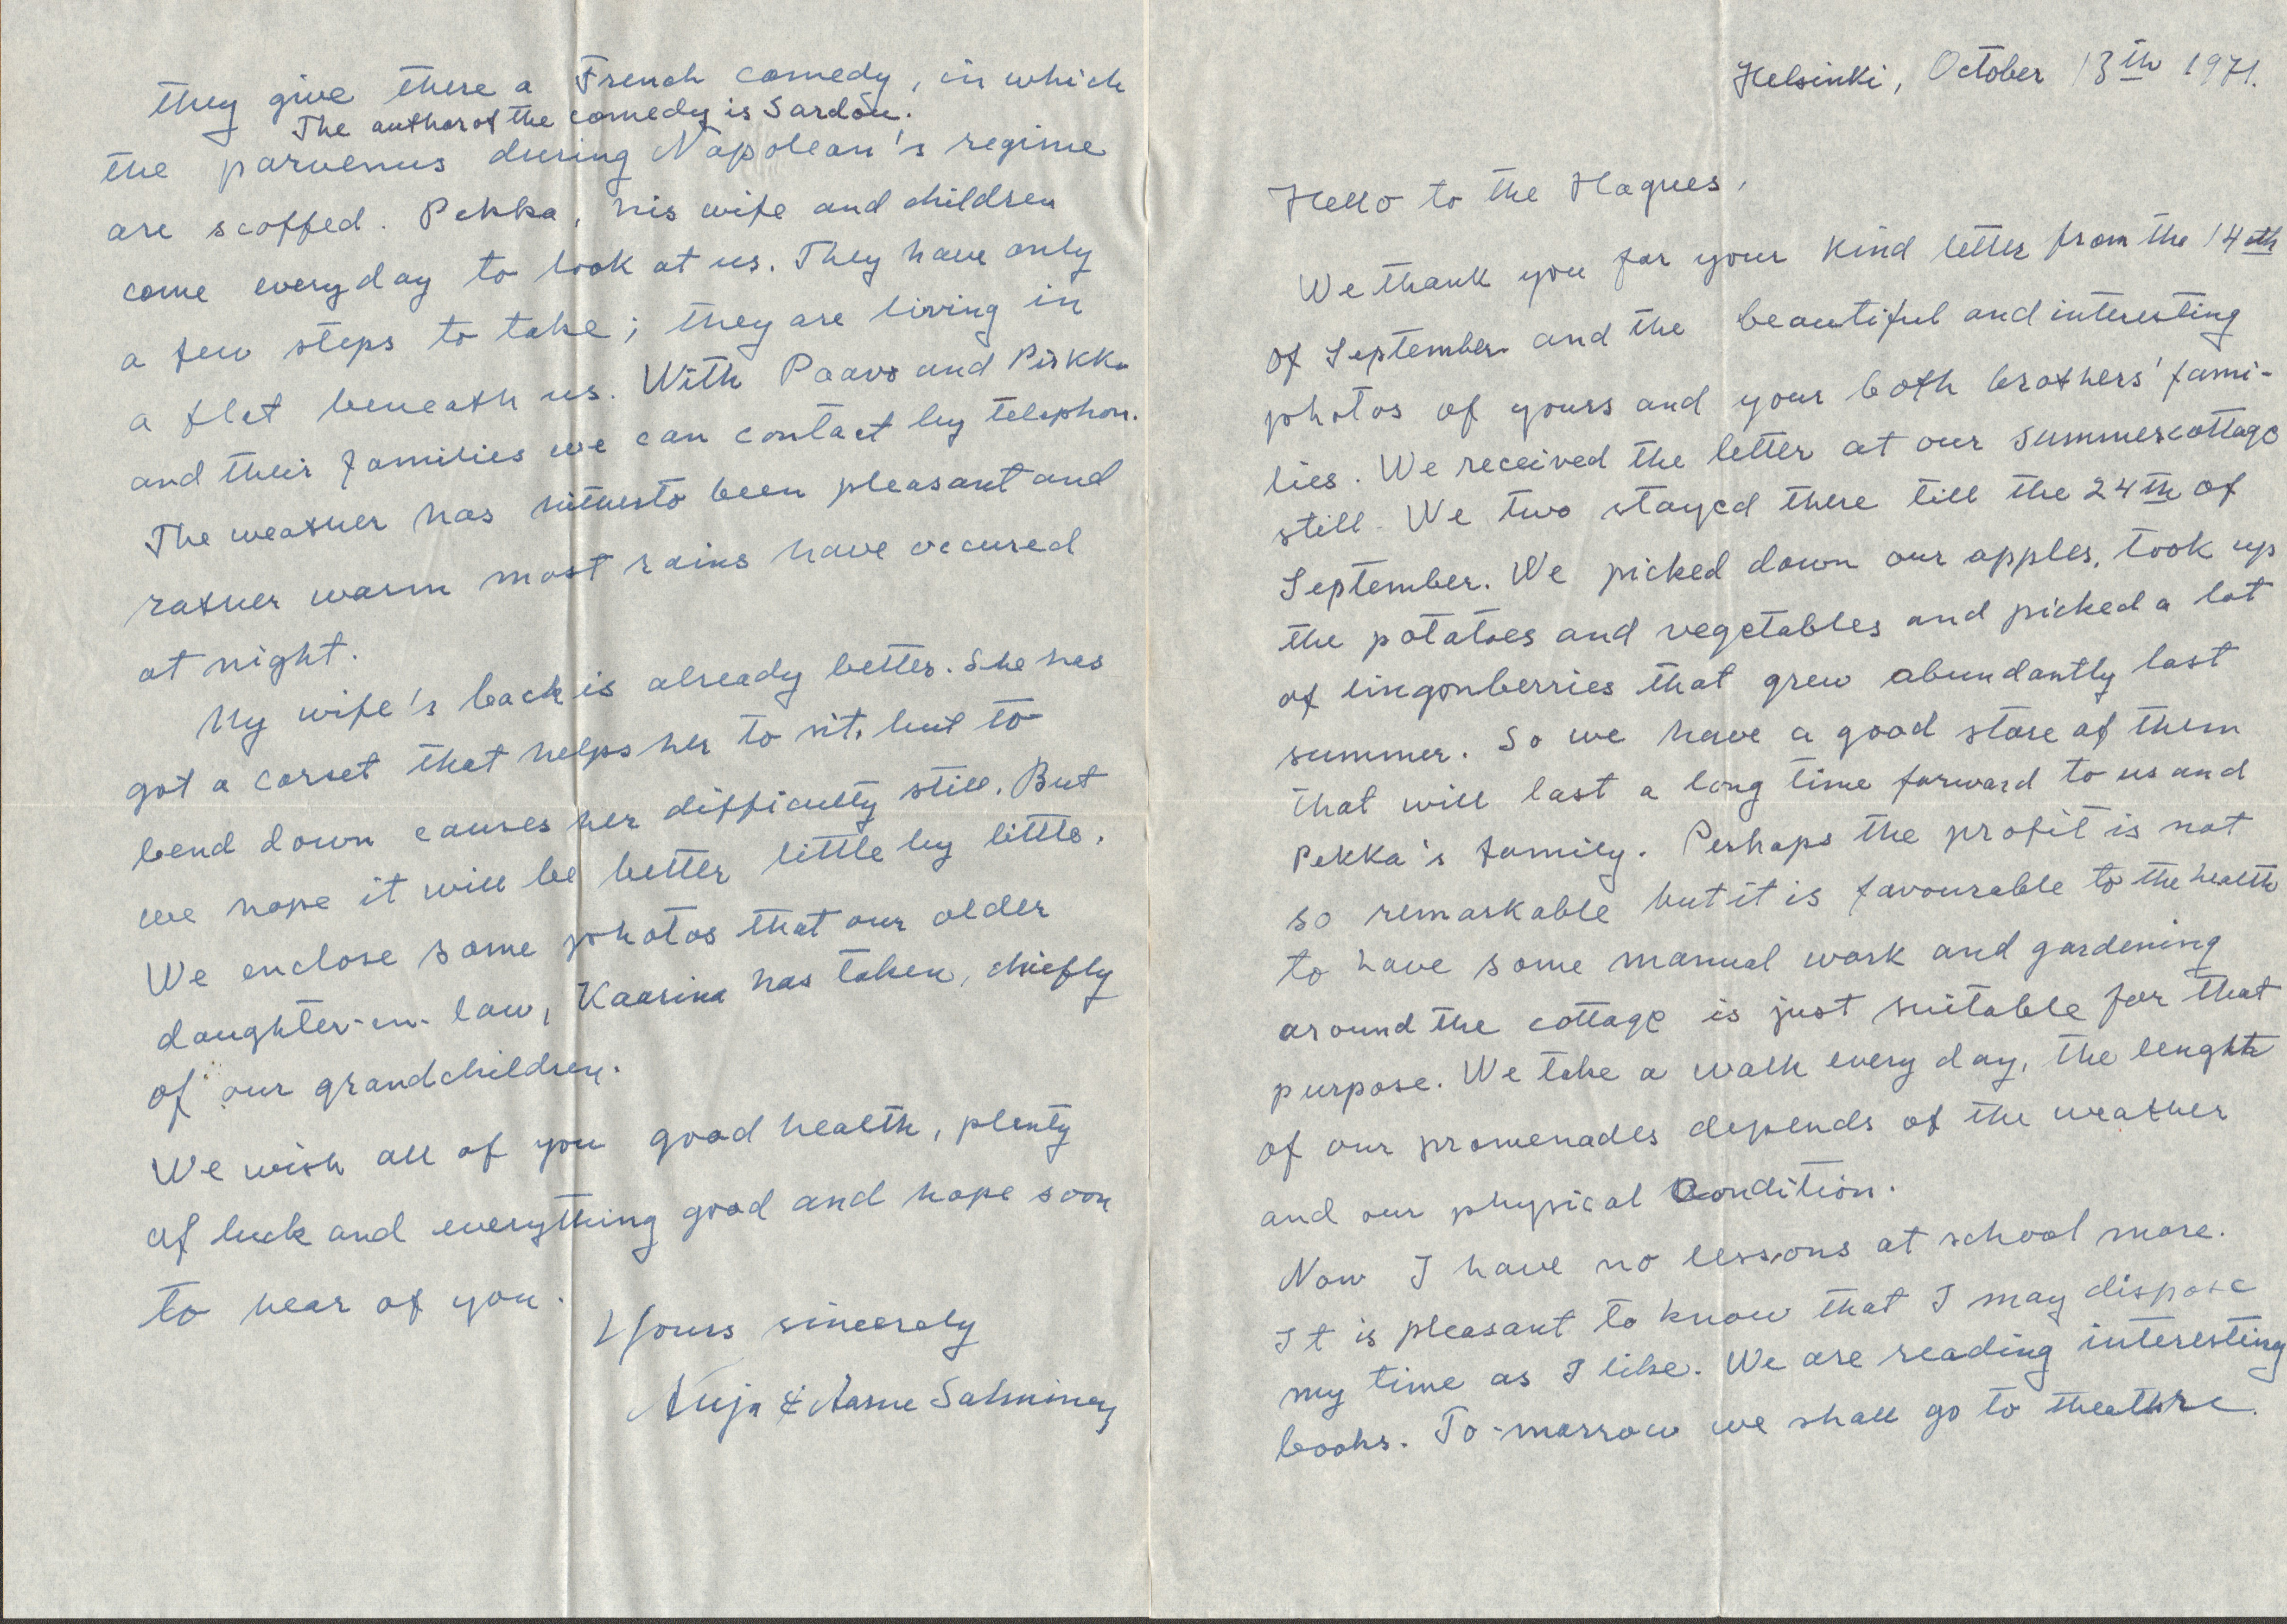 Helsinki, October 13th 1971.
Hello to the Hagues,
We thank you for your kind letter from the 14oth
of September and the beautiful and interesting
photos of yours and your both brothers' fami-
lies. We received the letter at our summercottage
still. We two stayed there till the 24th of
September. We picked down our apples, took up
the potatoes and vegetables and picked a lot
of lingonberries that grew abundantly last
summer. So we have a good store of them
that will last a long time forward to us and
Pekka's family. Perhaps the profit is not
so remarkable but it is favourable to the health
to have some manual work and gardening
around the cottage is just suitable for that
purpose. We take a walk every day, the lenght
of our promenades depends of the weather
and our physical condition.
Now I have no lessons at school more.
It is pleasant to know that I may dispose
my time as I like. We are reading interesting
books. To-morrow we shall go to theathre.
they give there a French comedy, in which
The author of the comedy is Sardou.
the parvenus during Napolean's regime
are scoffed. Pekka, his wife and children
come every day to look at us. They have only
a few steps to take; they are living in
a flat beneath us. With Paavo and Pirkko
and their families we can contact by telephon.
The weather has hitherto been pleasant and
rather warm most rains have occured
at night.
My wife's back is already better. She has
got a corset that helps her to sit, but to
bend down causes her difficulty still. But
we hope it will be better little by little.
We enclose some photos that our older
daughter-in-law, Kaarina has taken, chiefly
of our grandchildren.
We wish all of you good health, plenty
of luck and everything good and hope soon
to hear of you.
Yours sincerely
Anja & Aarne Salminen